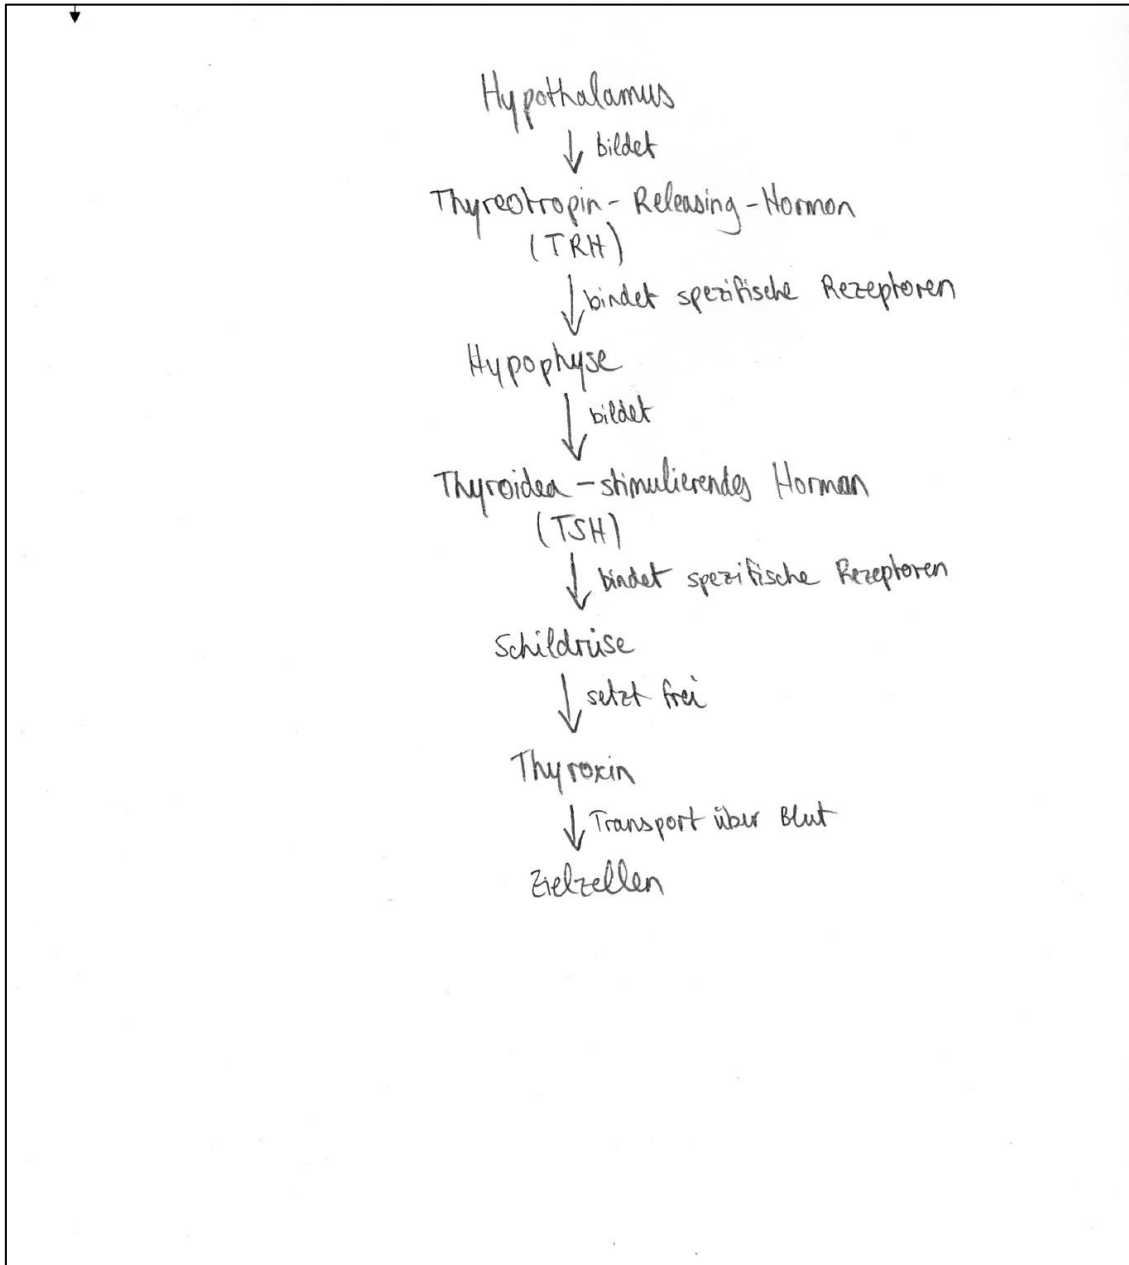 Hypothalamus
bildet
Thyreotropin - Releasing - Hormon
(TRH)
bindet spezifische Rezeptoren
Hypophyse
bildet
Thyroidea - stimulierendes Hormon
(TSH)
bindet spezifische Rezeptoren
Schildrüse
setzt frei
Thyroxin
Transport über Blut
Zielzellen